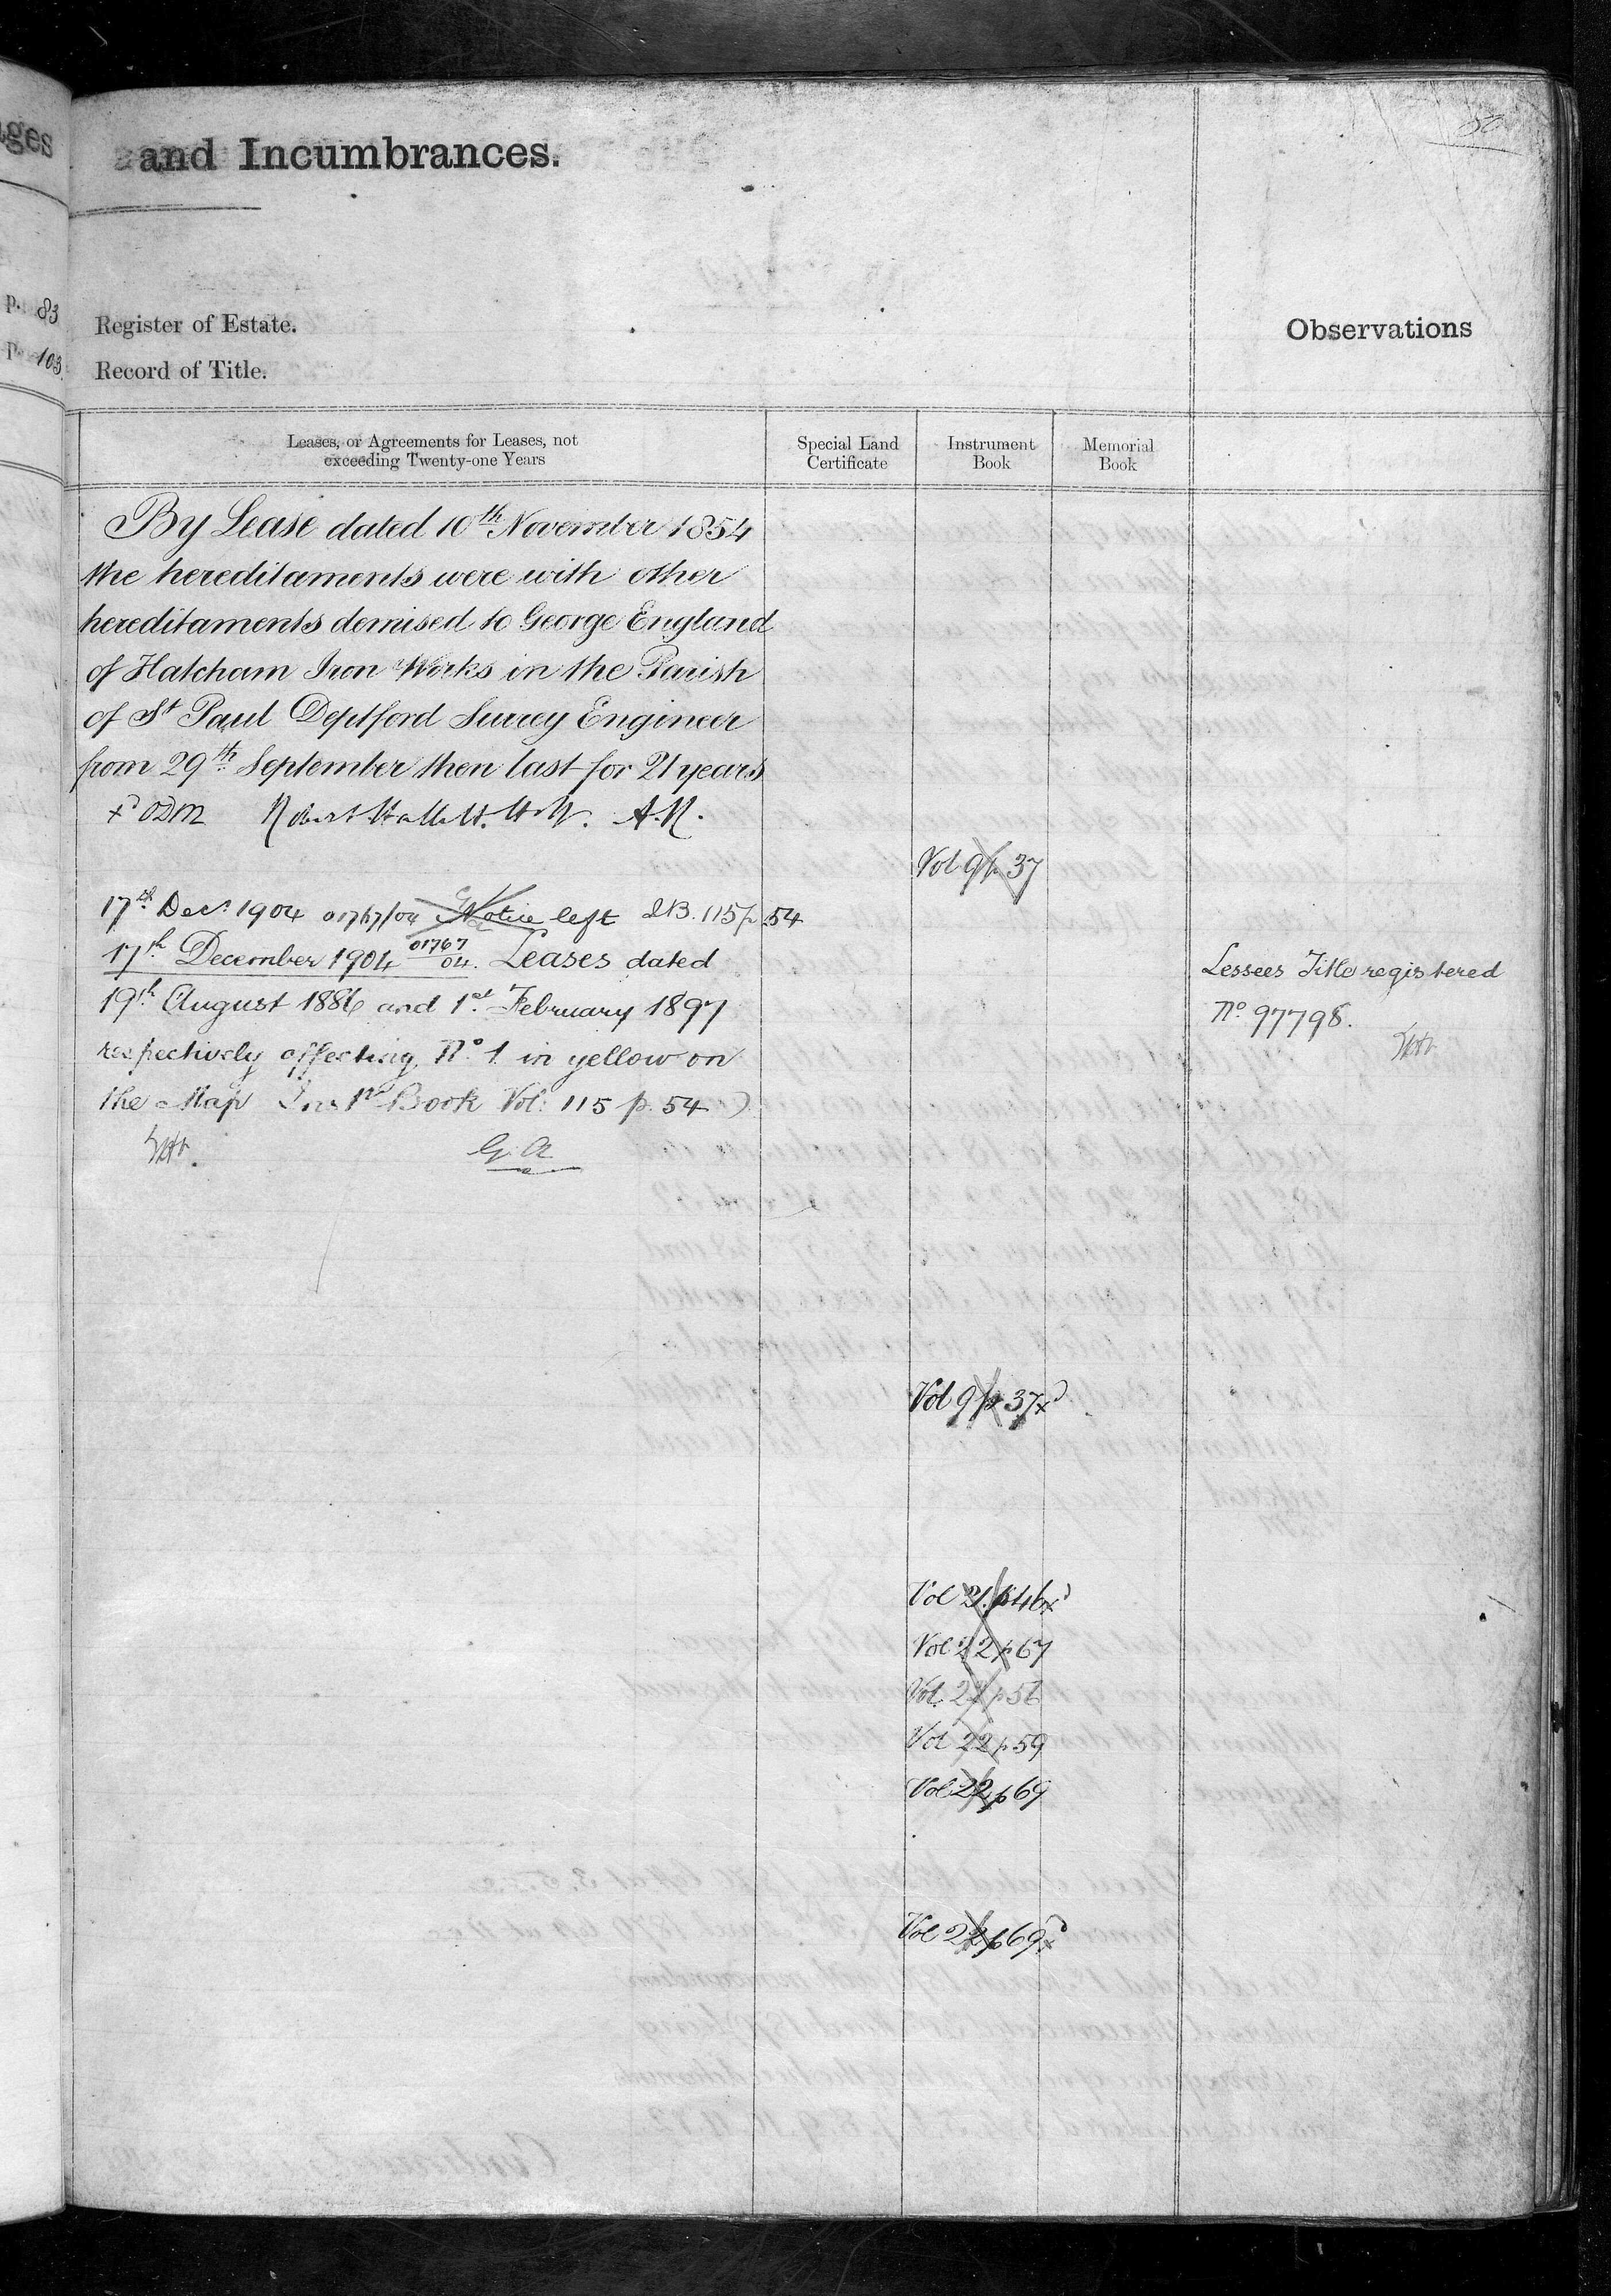 ages
and Incumbrances.
50
p. 83
p. 103.
Register of Estate.
Record of Title.
Observations
Leases, or Agreements for Leases, not
exceeding Twenty-one Years
Special Land
Certificate
Instrument
Book
Memorial
Book
By Lease dated 10th November 1854
the hereditaments were with other
hereditaments demised to George England
of Hatcham Iron Works in the Parish
of St Paul Deptford Surrey Engineer
from 29th September then last for 21 years
xd ODM Robert Hallett. A.R.
Vol 9 p 37
17th Decr. 1904 01767/04 Notice left I.B. 115 p 54
17th December 1904 01767/04. Leases dated
19th August 1886 and 1st February 1897
respectively affecting No. 1 in yellow on
the Map Inst Book Vol: 115 p. 54
G.A
Lessees Title registered
No. 97798.
Vol 9 p 37 xd
Vol 21 p 46 xd
Vol 22 p 67
Vol 22 p 56
Vol 22 p 59
Vol 22 p 69
Vol 22 p 69 xd